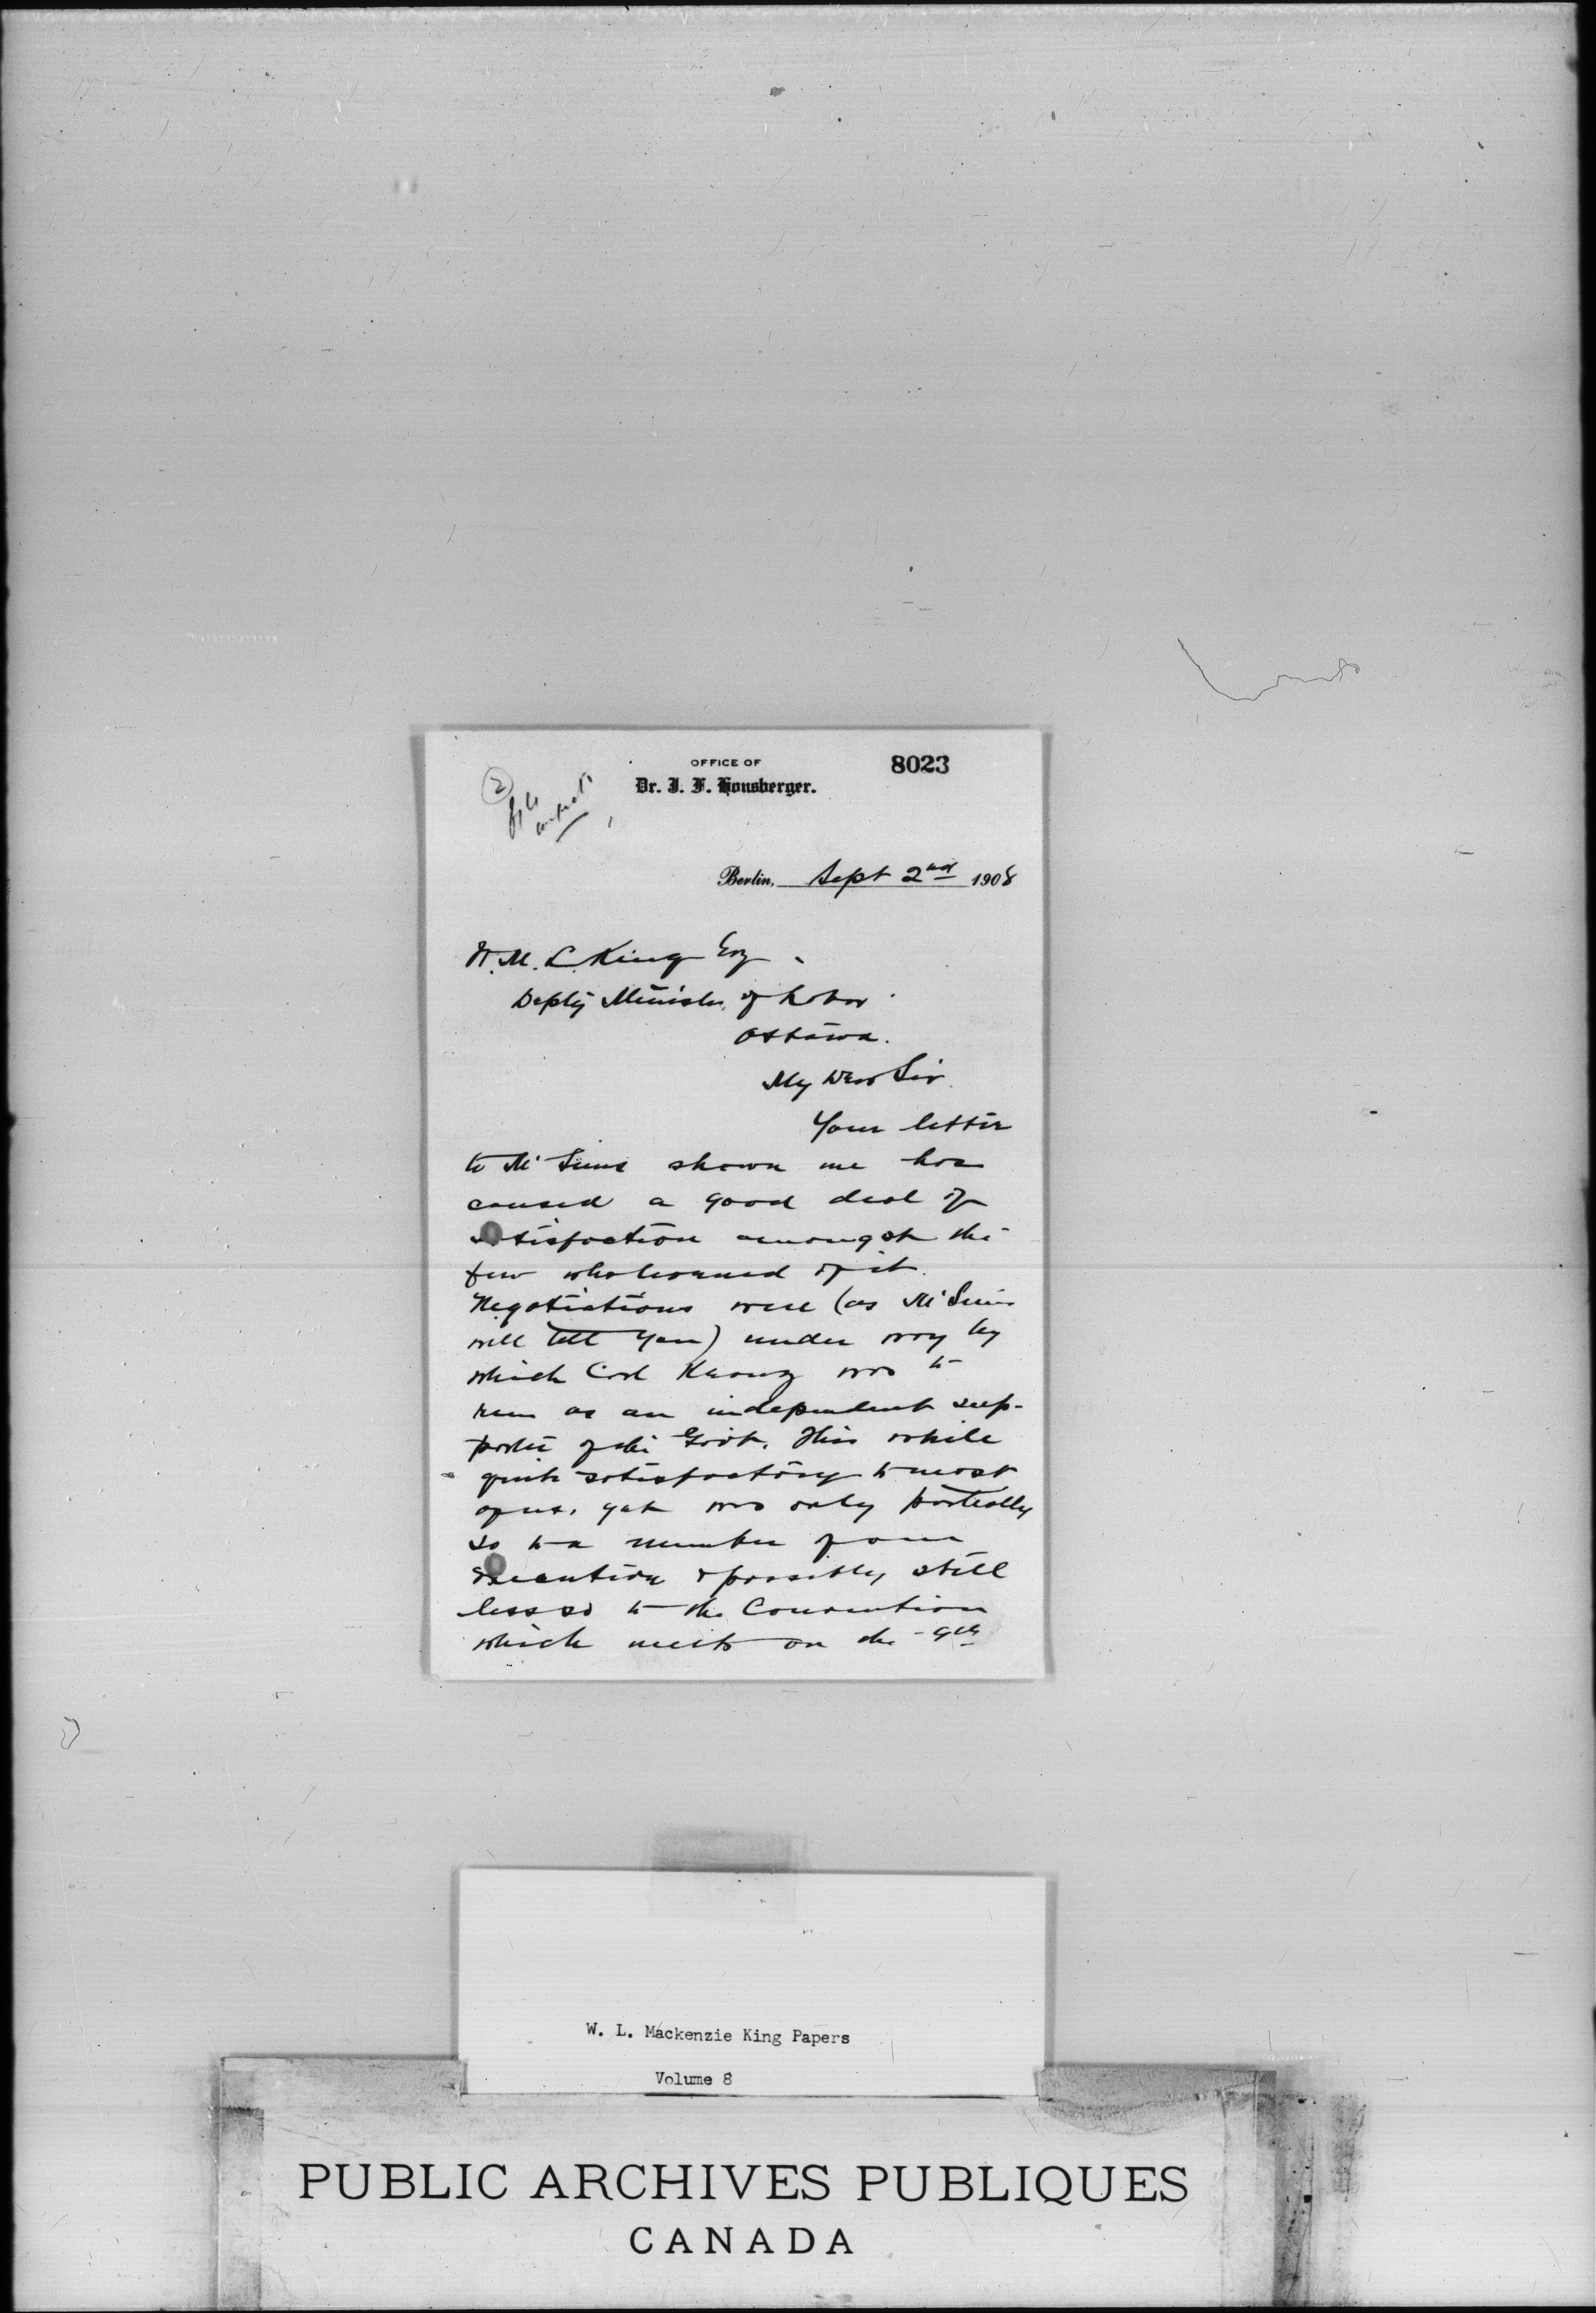 8023
OFFICE OF
Dr. J. F. Honsberger.
2
file
Berlin, Sept 2nd 1908
W. M. L. King Esq
Depty Minister of Labor
Ottawa.
My Dear Sir
Your letter
to Mr Sims shown me has
caused a good deal of
satisfaction amongst the
few who learned of it.
Negotiations were (as Mr Sims
will tell you) under way by
which Carl Kranz was to
run as an independent sup-
porter of the Govt. This while
quite satisfactory to most
of us, yet was only partially
so to a number of our
Executive & possibly still
less so to the Convention
which meets on the 9th
W. L. Mackenzie King Papers
Volume 8
PUBLIC ARCHIVES PUBLIQUES
CANADA